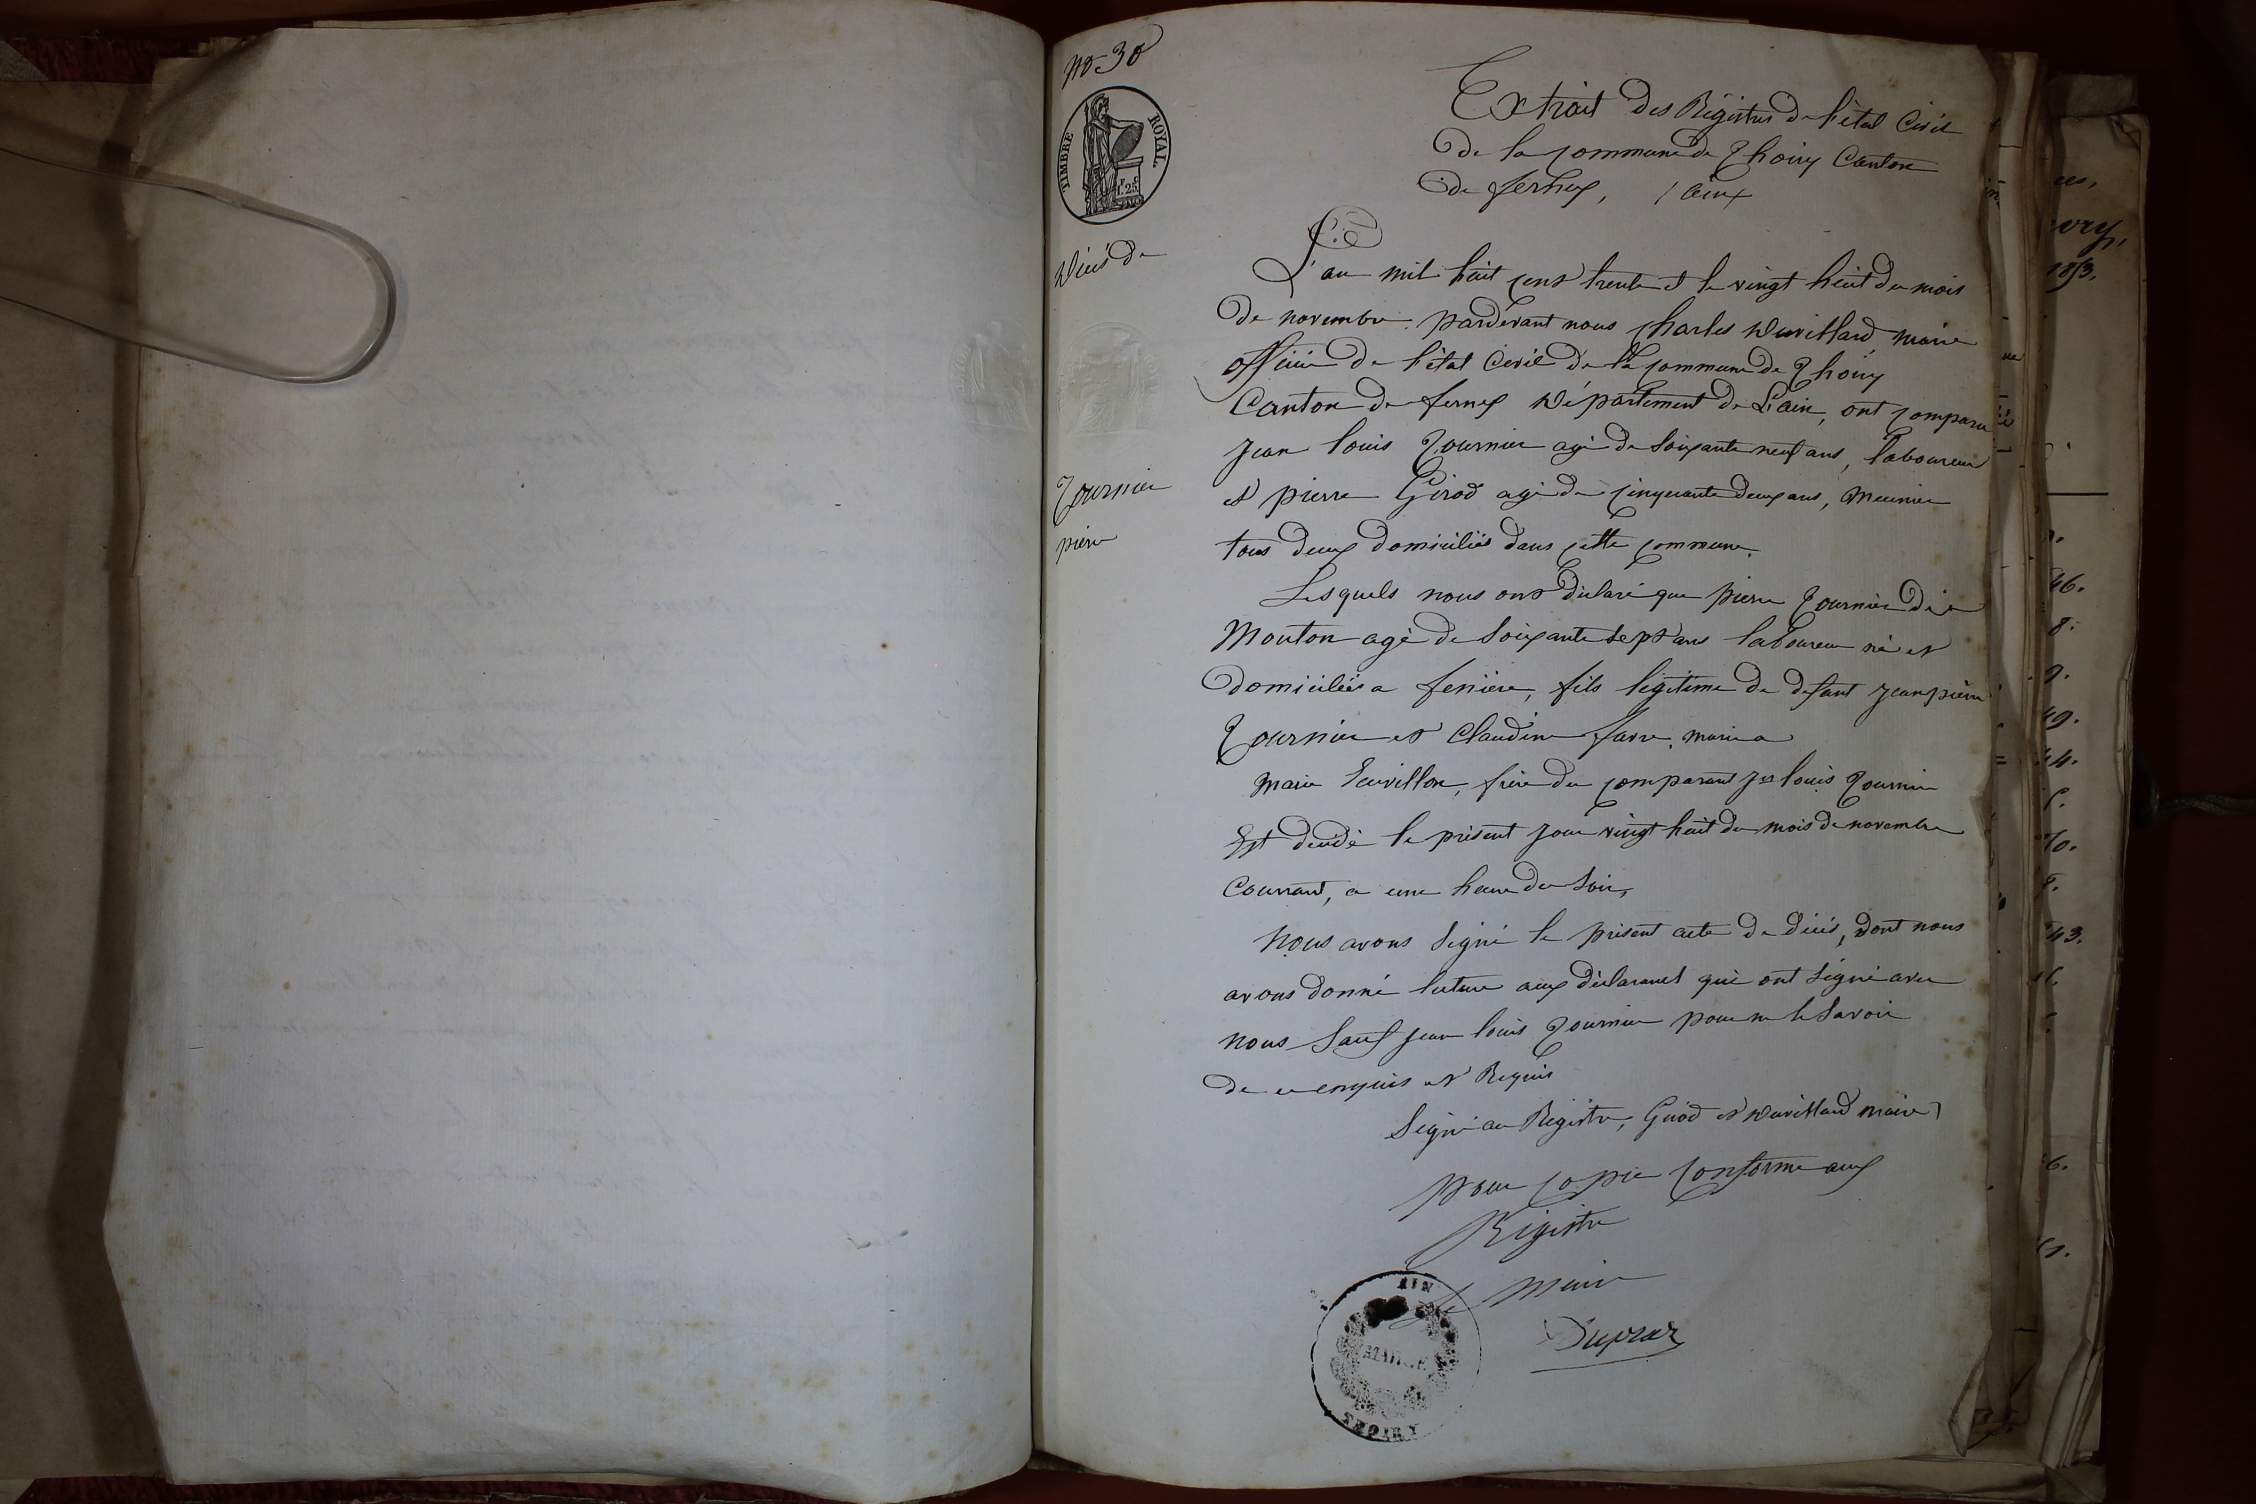 no 30
TIMBRE ROYAL
1. 25
Extrait des Régistres de l'état Civil
de la commune de Thoiry Canton
de ferney, (ain)
Décés de
L'an mil huit cent trente et le vingt huit du mois
de novembre. pardevant nous charles Duvillard maire
officier de l'état Civil de la commune de Thoiry
Canton de ferney Département de L'ain, ont comparu
jean louis Tournier agé de soixante neuf ans, laboureur
Tournier
pierre
et pierre Girod agé de cinquante deux ans, meunier
tous deux domiciliés dans cette commune.
Lesquels nous ont déclaré que pierre Tournier dit
Mouton agé de soixante sept ans laboureur né et
domicilié a feniére, fils légitime de defunt jean pierre
Tournier et Claudine favre. marié a
marie Ecuvillon, frére du comparant jean louis Tournier
Est décédé le présent jour vingt huit du mois de novembre
Courrant, a une heure du soir,
Nous avons signé le présent acte de décés, dont nous
avons donné lecture aux déclarants qui ont signé avec
nous sauf jean louis Tournier pour ne le savoir
de ce enquis et Requis
Signé au Régistre, Girod et Duvillard maire)
Pour copie conforme aux
Régistre
Le Maire
AIN
MAIRIE
THOIRY